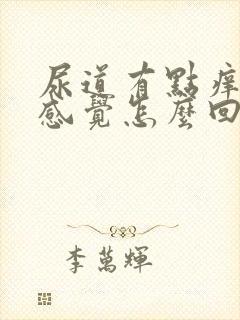 尿道有點痒
感覺怎麼回
李萬輝